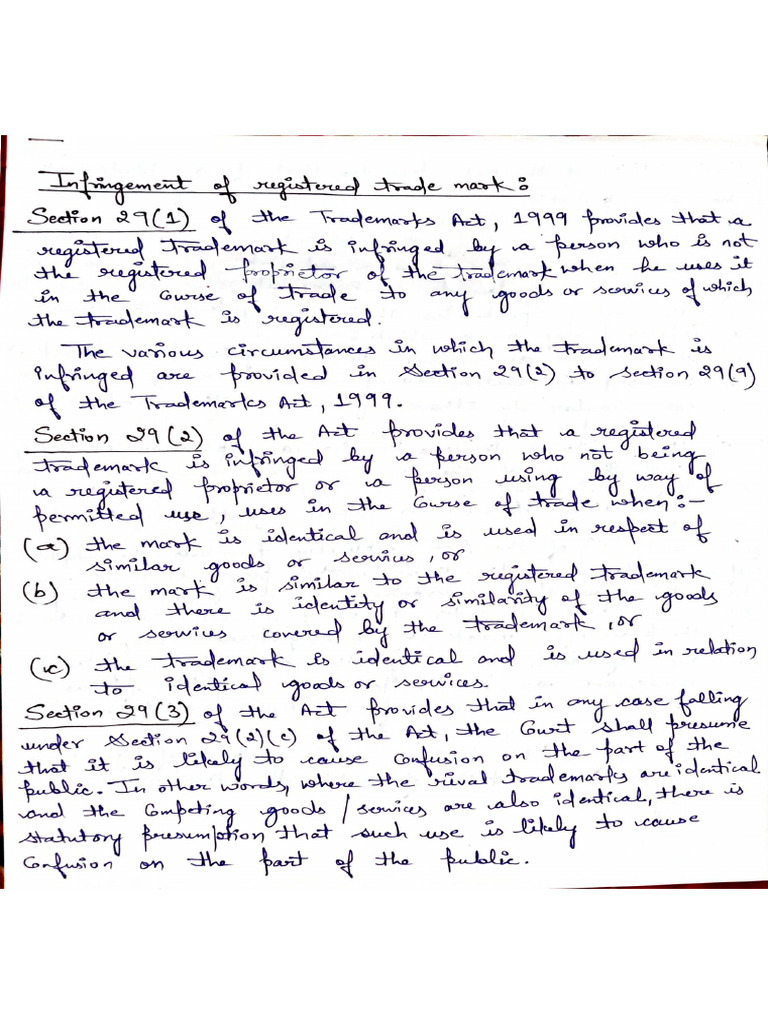 Infringement of registered trade mark:
Section 29(1) of the Trademarks Act, 1999 provides that a
registered trademark is infringed by a person who is not
the registered proprietor of the trademark when he uses it
in the course of trade to any goods or services of which
the trademark is registered.
The various circumstances in which the trademark is
infringed are provided in Section 29(2) to section 29(9)
of the Trademarks Act, 1999.
Section 29(2) of the Act provides that a registered
trademark is infringed by a person who not being
a registered proprietor or a person using by way of
permitted use, uses in the course of trade when:-
(a) the mark is identical and is used in respect of
similar goods or services, or
(b) the mark is similar to the registered trademark
and there is identity or similarity of the goods
or services covered by the trademark, or
(c) the trademark is identical and is used in relation
to identical goods or services.
Section 29(3) of the Act provides that in any case falling
under Section 29(2)(c) of the Act, the Court shall presume
that it is likely to cause confusion on the part of the
public. In other words, where the rival trademarks are identical
and the competing goods/services are also identical, there is
statutory presumption that such use is likely to cause
confusion on the part of the public.